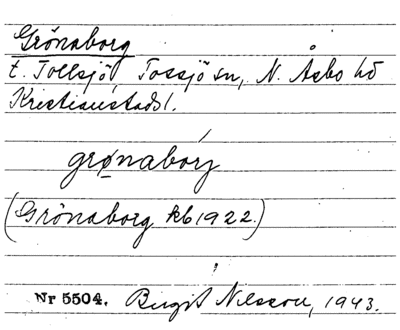 Grönaborg
t. Tollsjö, Tossjö sn, N. Åsbo hd
Kristianstads l.
grønabórj
(Grönaborg kb 1922.)
Nr 5504. Birgit Nilsson, 1943.